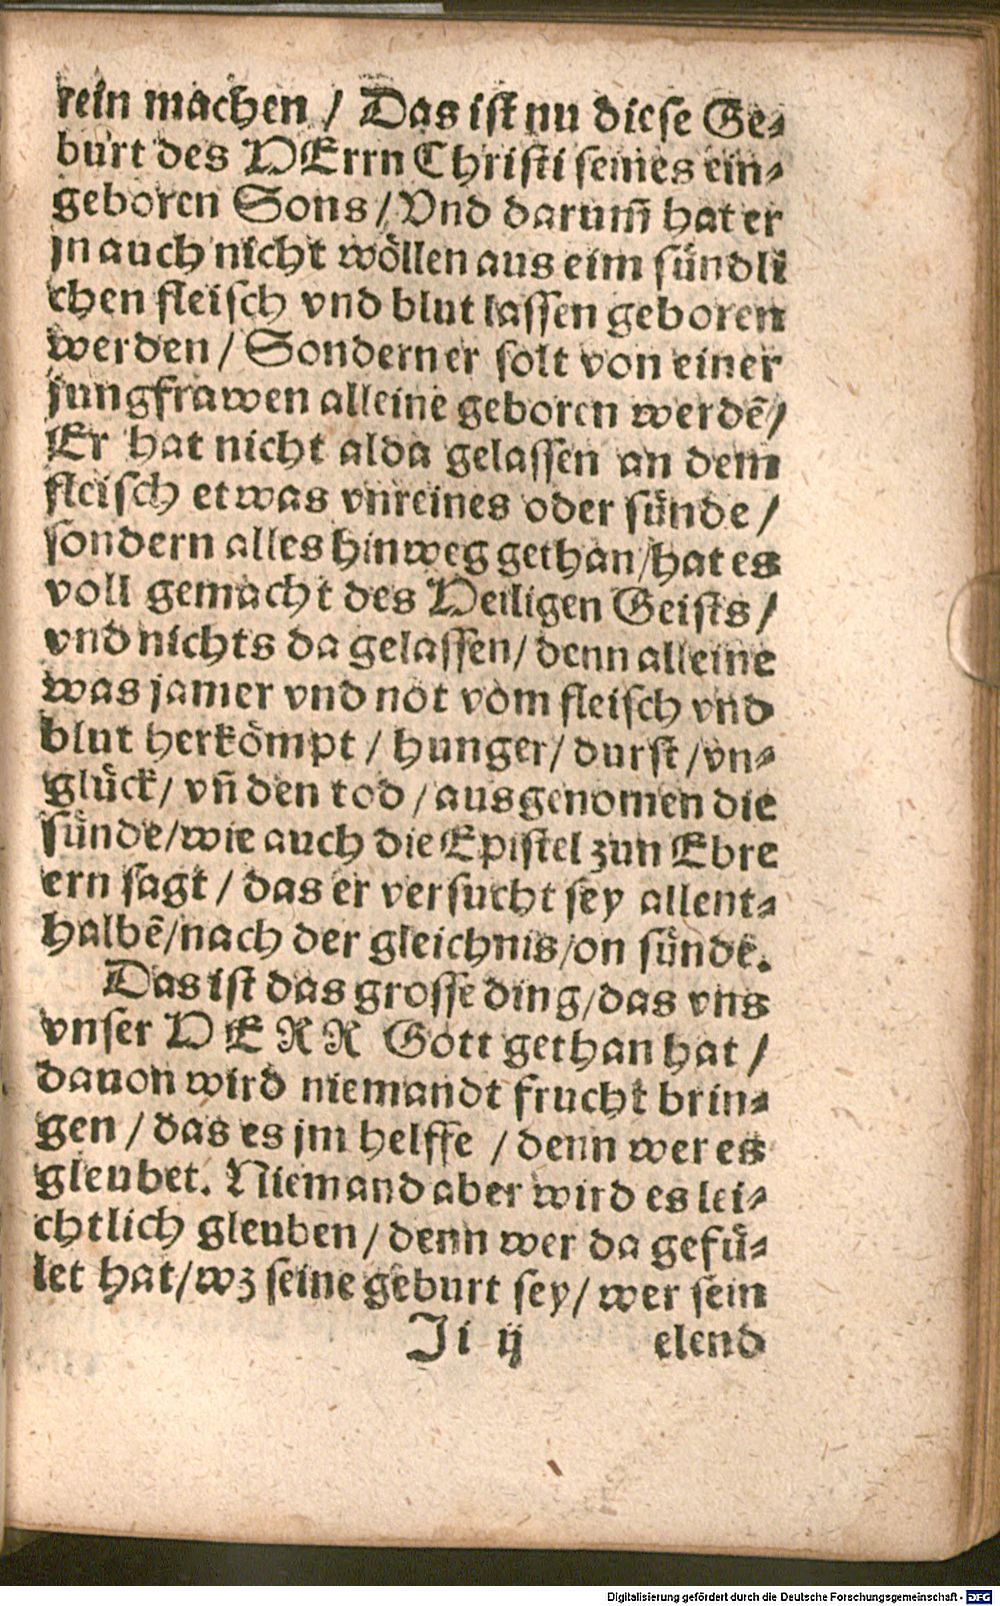 rein machen / Das ist nu diese Ge-
burt des HErrn Christi seines ein-
geboren Sons / Vnd darum̃ hat er
jn auch nicht wöllen aus eim sündli
chen fleisch vnd blut lassen geboren
werden / Sondern er solt von einer
jungfrawen alleine geboren werdẽ /
Er hat nicht alda gelassen an dem
fleisch etwas vnreines oder sünde /
sondern alles hinweg gethan / hat es
voll gemacht des Heiligen Geists /
vnd nichts da gelassen / denn alleine
was jamer vnd not vom fleisch vnd
blut herkömpt / hunger / durst / vn-
glück / vñ den tod / ausgenomen die
sünde / wie auch die Epistel zun Ebre
ern sagt / das er versucht sey allent-
halbẽ / nach der gleichnis / on sünde.
Das ist das grosse ding / das vns
vnser HERR Gott gethan hat /
dauon wird niemandt frucht brin-
gen / das es jm helffe / denn wer es
gleubet. Niemand aber wird es lei-
chtlich gleuben / denn wer da gefü-
let hat / wz seine geburt sey / wer sein
Ji ij elend
Digitalisierung gefördert durch die Deutsche Forschungsgemeinschaft - DFG